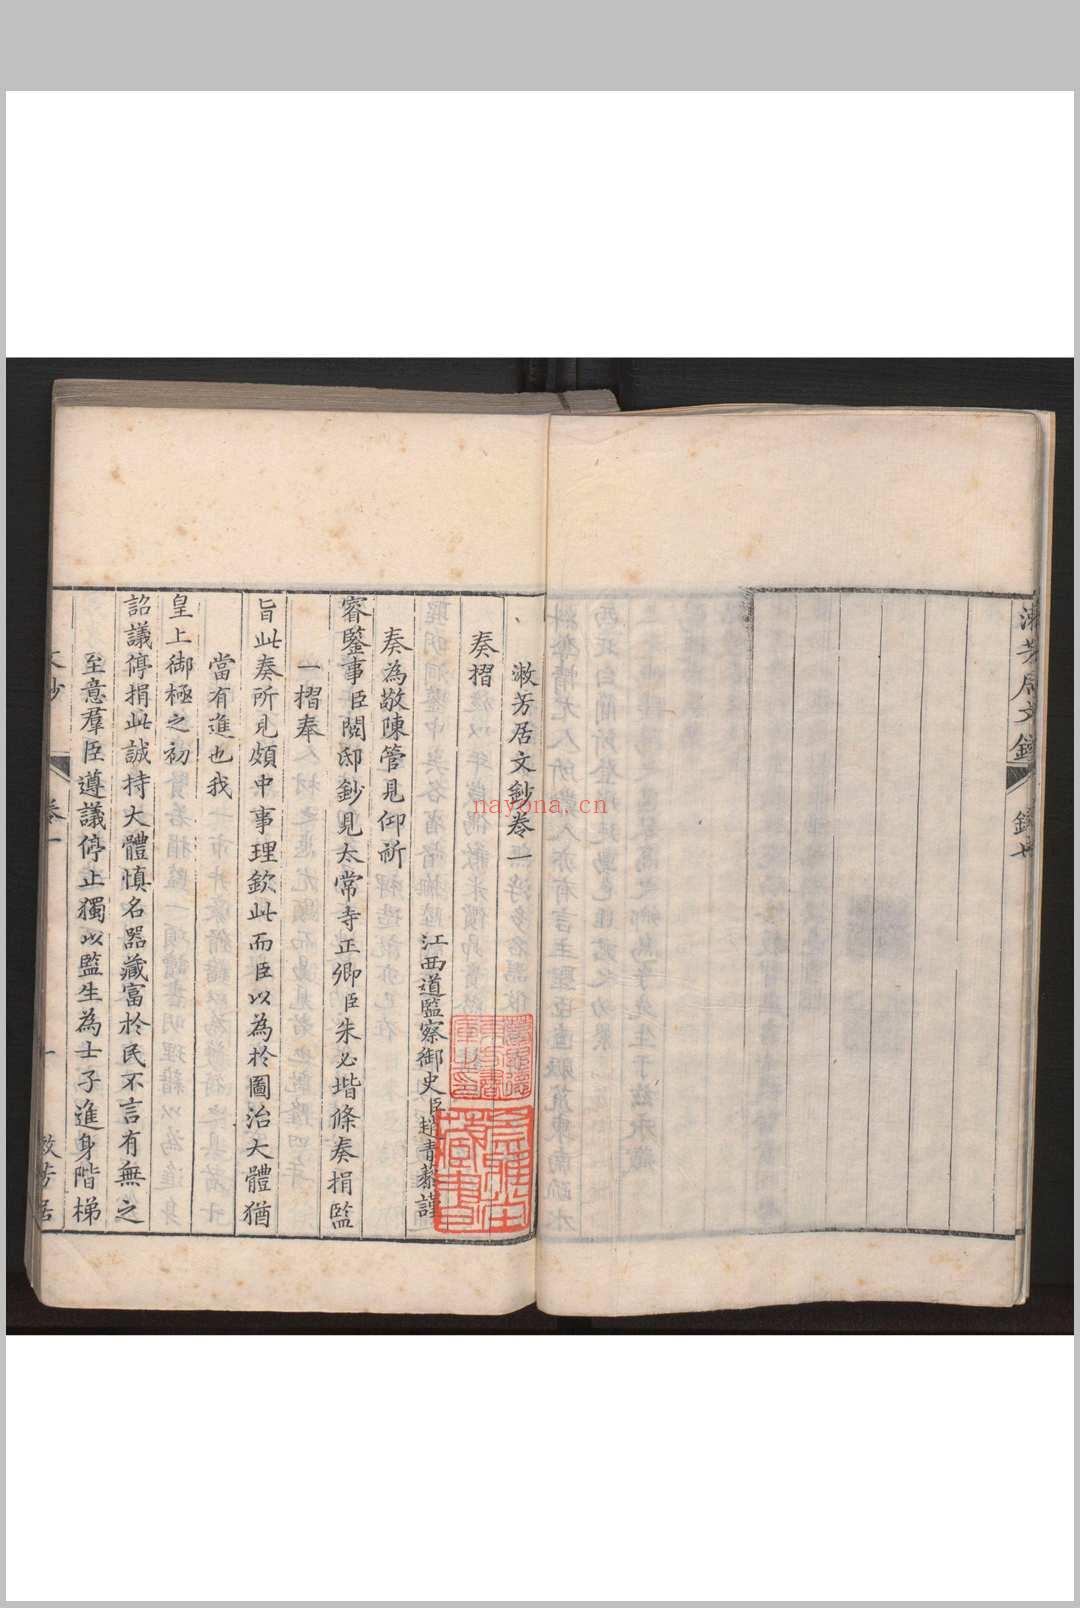 漱芳居文鈔卷一
奏摺
江西道監察御史臣趙青藜謹
奏為敬陳管見仰祈
睿鑒事臣閱邸鈔見太常寺正卿臣朱必堦條奏捐監
一摺奉
旨此奏所見頗中事理欽此而臣以為於圖治大體猶
當有進也我
皇上御極之初
詔議停捐此誠持大體慎名器藏富於民不言有無之
至意羣臣遵議停止獨以監生為士子進身階梯
文鈔
卷一
一
漱芳居
nayona.cn